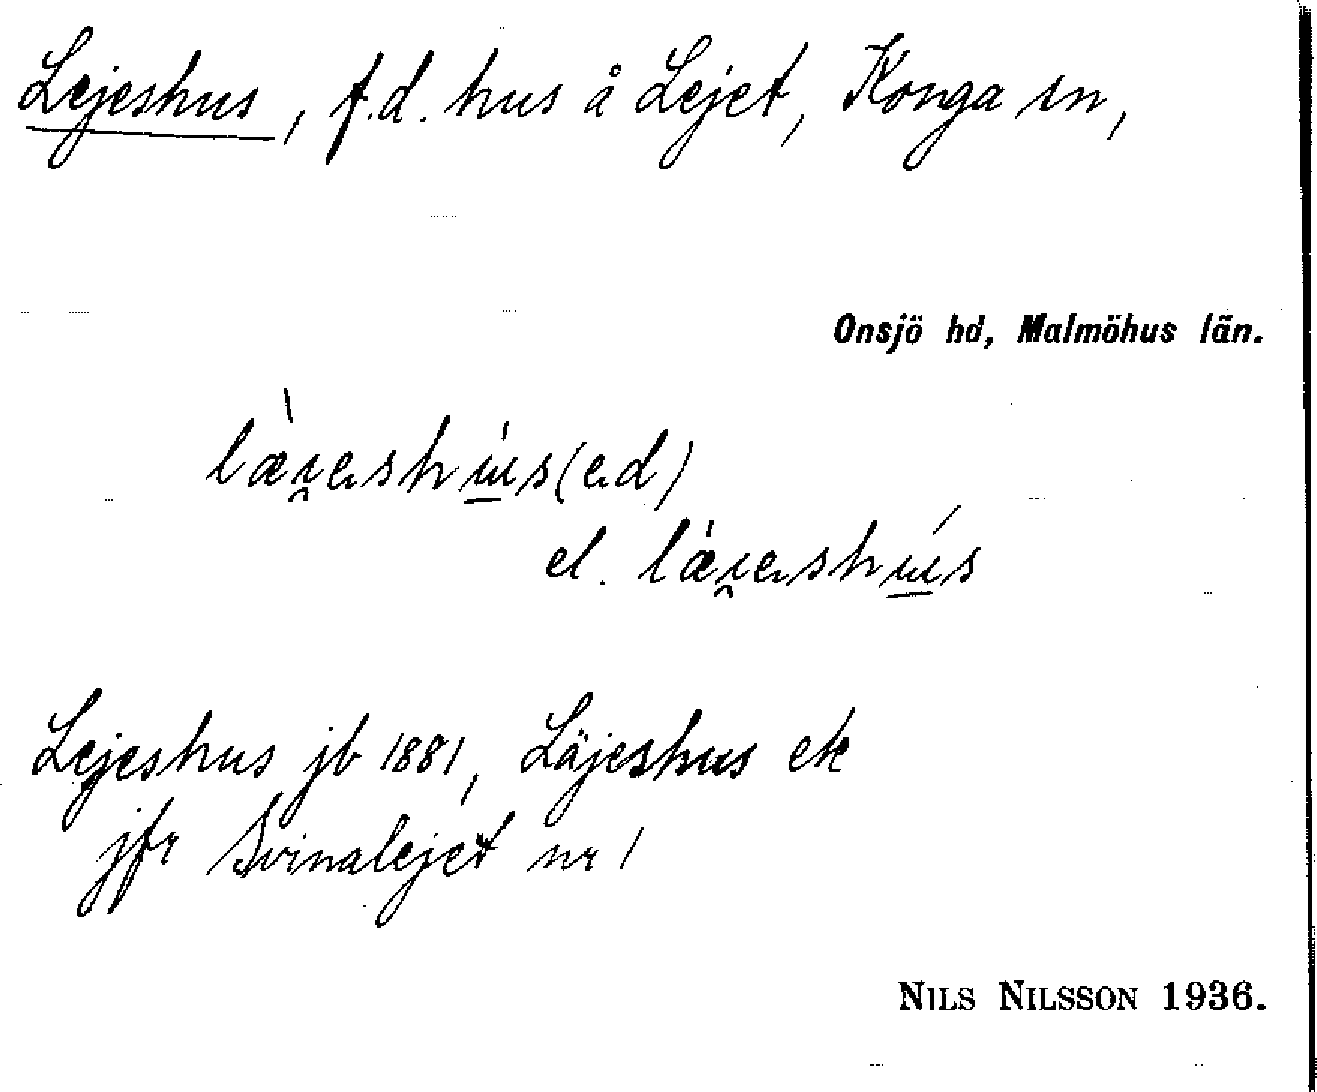 Lejeshus, f.d. hus å Lejet, Konga sn,
Onsjö hd, Malmöhus län.
el.
Lejeshus jb 1881, Läjeshus ek
jfr Svinalejet nr 1
NILS NILSSON 1936.